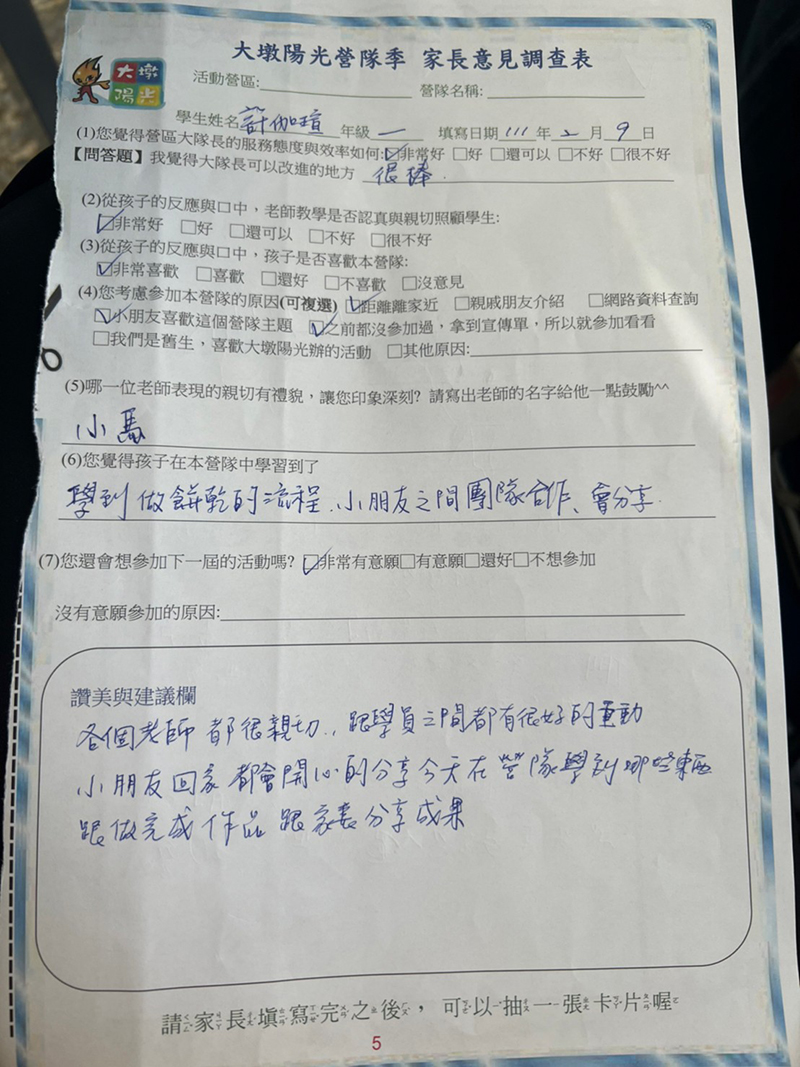 大墩陽光
大墩陽光營隊季 家長意見調查表
活動營區: 營隊名稱:
學生姓名 許伽瑄 年級 一 填寫日期 111 年 2 月 9 日
(1)您覺得營區大隊長的服務態度與效率如何:☑非常好 □好 □還可以 □不好 □很不好
【問答題】我覺得大隊長可以改進的地方 很棒.
(2)從孩子的反應與口中,老師教學是否認真與親切照顧學生:
☑非常好 □好 □還可以 □不好 □很不好
(3)從孩子的反應與口中,孩子是否喜歡本營隊:
☑非常喜歡 □喜歡 □還好 □不喜歡 □沒意見
(4)您考慮參加本營隊的原因(可複選) ☑距離離家近 □親戚朋友介紹 □網路資料查詢
☑小朋友喜歡這個營隊主題 ☑之前都沒參加過,拿到宣傳單,所以就參加看看
□我們是舊生,喜歡大墩陽光辦的活動 □其他原因:
(5)哪一位老師表現的親切有禮貌,讓您印象深刻? 請寫出老師的名字給他一點鼓勵^^
小馬
(6)您覺得孩子在本營隊中學習到了
學到做餅乾的流程、小朋友之間團隊合作、會分享.
(7)您還會想參加下一屆的活動嗎? ☑非常有意願□有意願□還好□不想參加
沒有意願參加的原因:
讚美與建議欄
各個老師都很親切.,跟學員之間都有很好的重動
小朋友回家都會開心的分享今天在營隊學到哪些東西
跟做完成作品跟家長分享成果
請家長填寫完之後,可以抽一張卡片喔
5